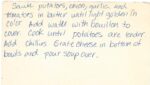 Sauté potatoes, onion, garlic and
tomatoes in butter until light golden in
color. Add water with bouillon to
cover. Cook until potatoes are tender.
Add chilies. Grate cheese in bottom of
bowls and pour soup over.